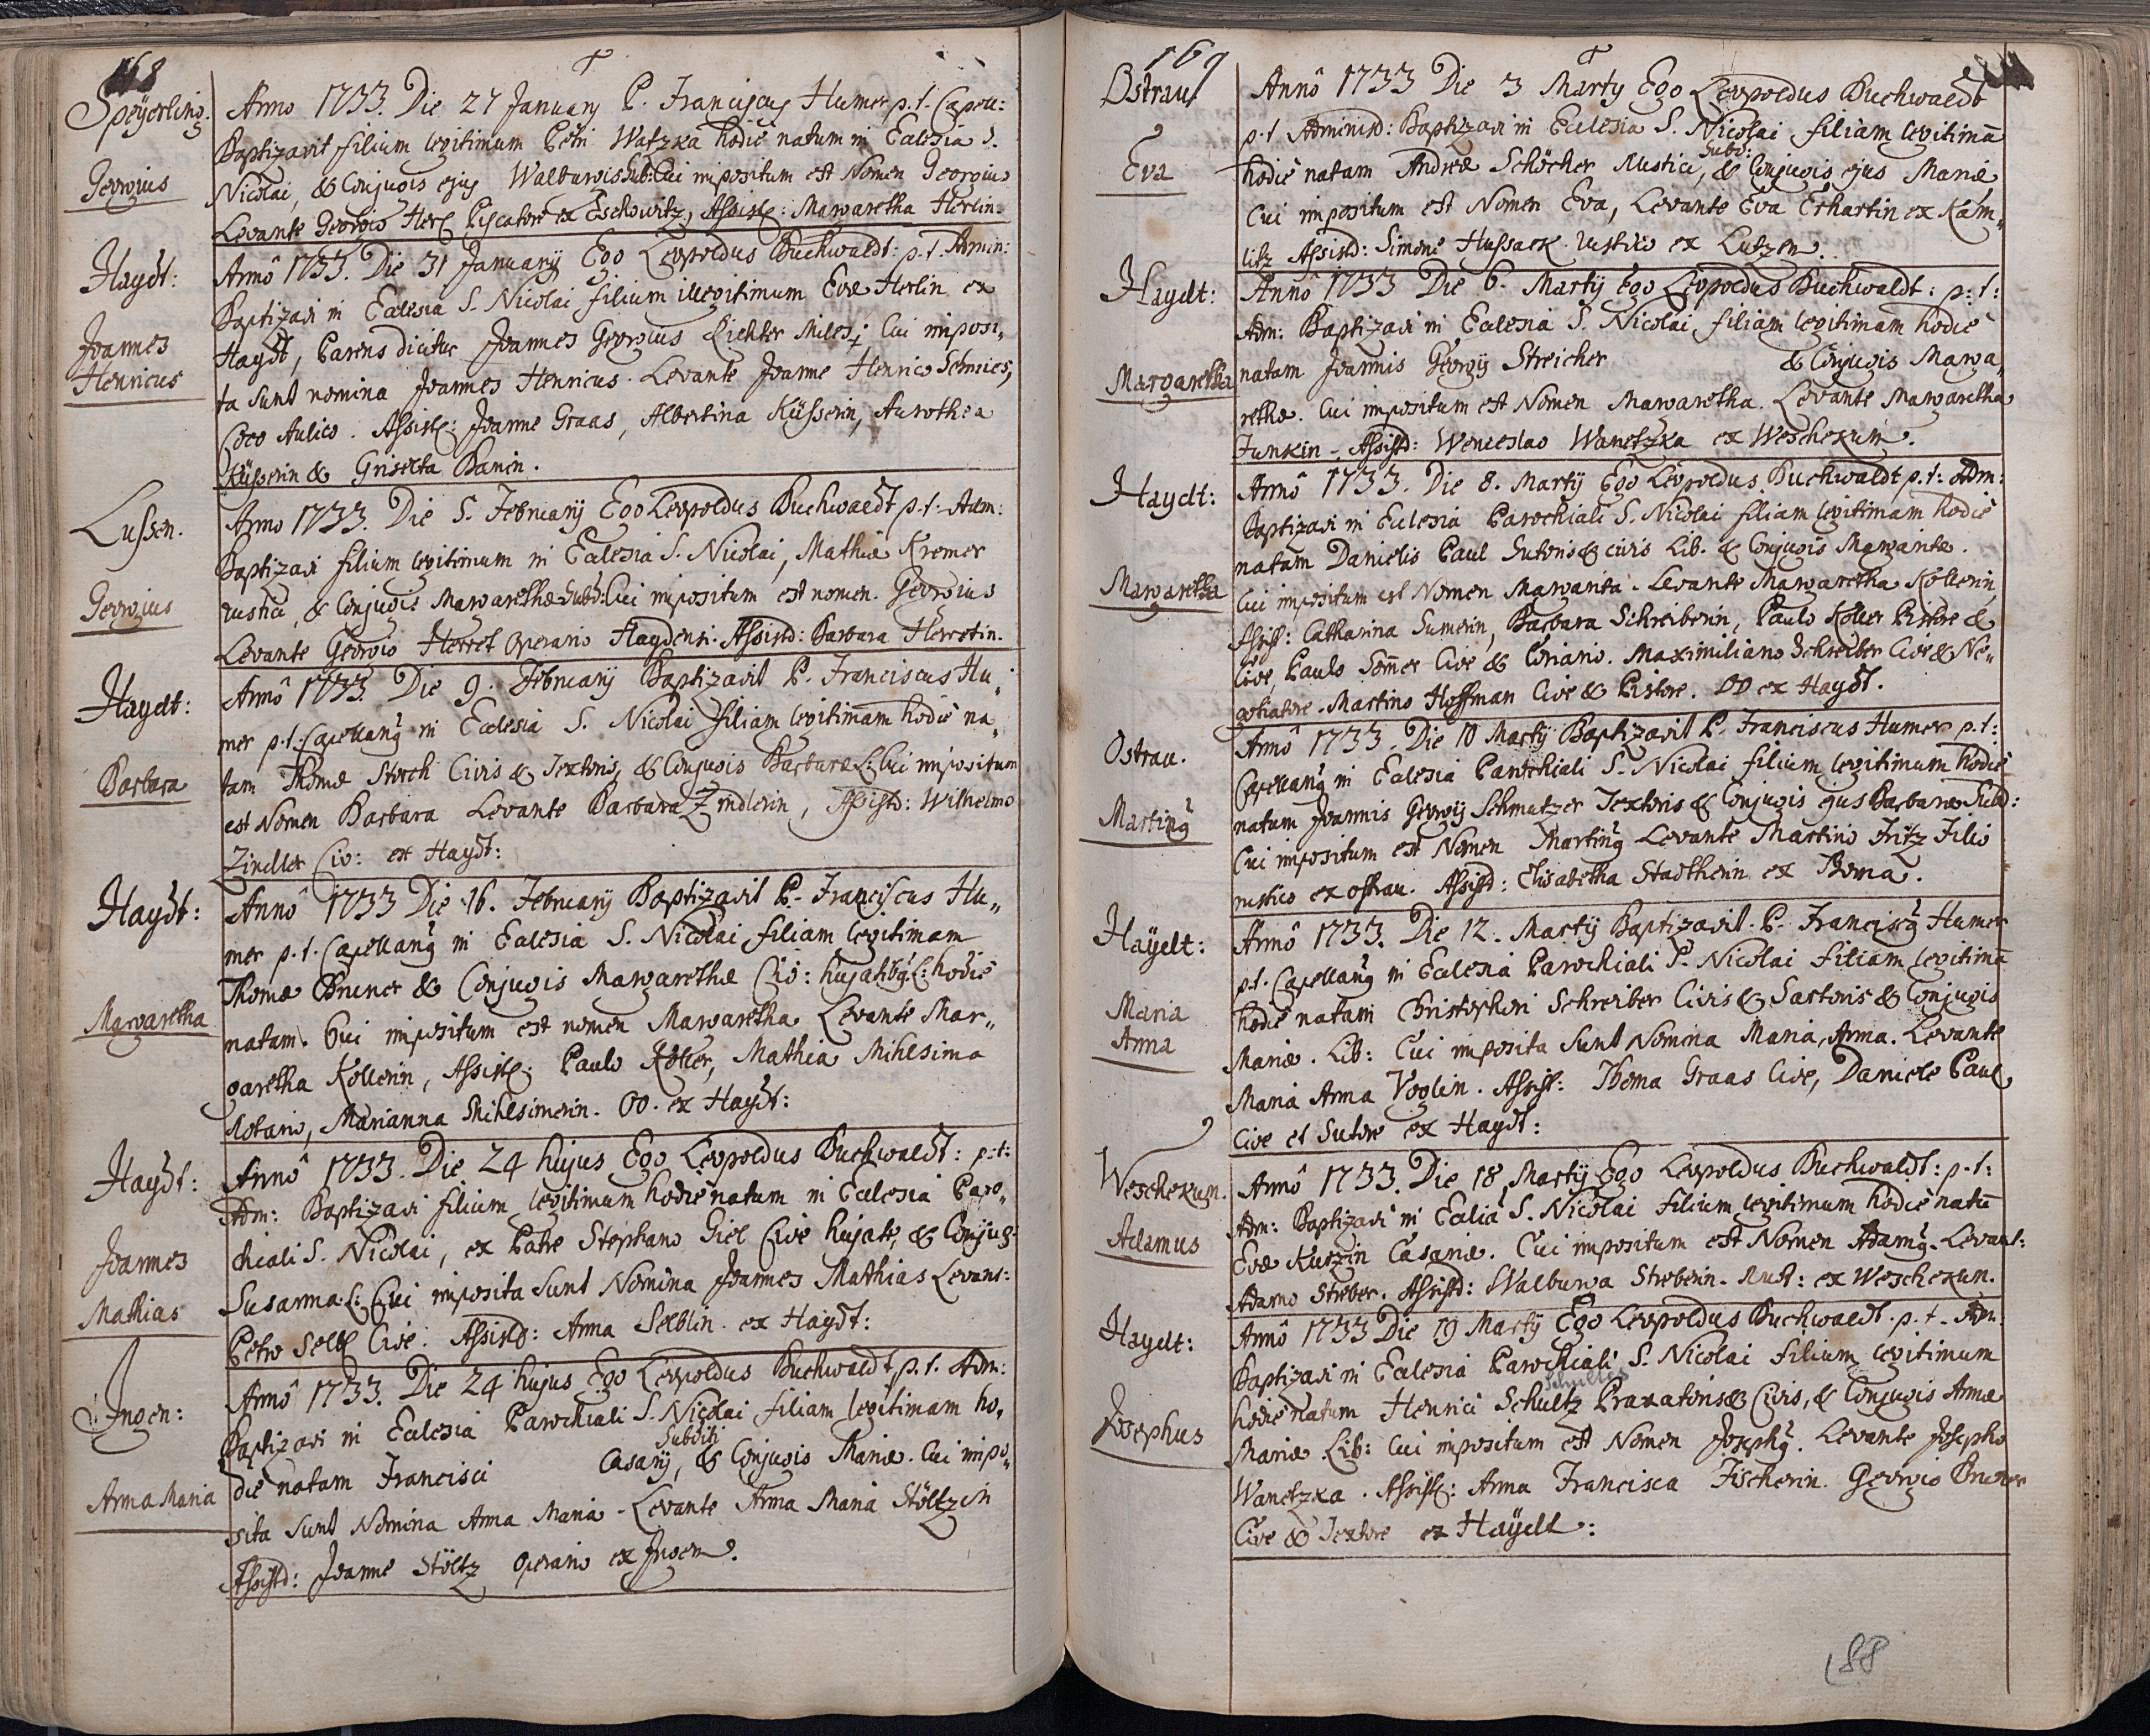 168
Speÿerling.
Georgius
Anno 1733. Die 27 Januarÿ P. Franciscus Humer p.t. Capell:
Baptizavit filium legitimum Petri Watzka hodie natum in Ecclesia S.
Nicolai, & Conjugis ejus Walburgis Sub: Cui impositum est Nomen Georgius
Levante Georgio Herl Piscatore ex Eschowitz, Assist: Margaretha Herlin.
Haÿdt:
Joannes
Henricus
Annô 1733. Die 31 Januarÿ Ego Leopoldus Buchwaldt: p.t. Admin:
Baptizavi in Ecclesia S. Nicolai filium illegitimum Evæ Herlin ex
Haÿdt, Parens dicitur Joannes Georgius Richter Miles; Cui imposi„
ta sunt nomina Joannes Henricus. Levante Joanne Henrico Schmies,
Coco Aulico. Assist: Joanne Graas, Albertina Küsserin, Aurothea
Küsserin & Griselta Banin.
Lussen.
Georgius
Anno 1733. Die 5. Februarÿ Ego Leopoldus Buchwaldt p.t. Adm:
Baptizavi filium legitimum in Ecclesia S. Nicolai, Mathiæ Kremer
rustici, & Conjugis Margarethæ Subd: Cui impositum est nomen Georgius
Levante Georgio Herret Operario Haydensi. Assistd: Barbara Herretin.
Haydt:
Barbara
Annô 1733. Die 9. Februarÿ Baptizavit P. Franciscus Hu„
mer p.t. Capellang in Ecclesia S. Nicolai filiam legitimam hodie na„
tam Thomæ Storch Civis & Textoris, & Conjugis Barbaræ L: Cui impositum
est Nomen Barbara Levante Barbara Zindlerin, Assistd: Wilhelmo
Zindler Civ: ex Haÿdt:
Haÿdt:
Margaretha
Annô 1733 Die 16. Februarÿ Baptizavit P. Franciscus Hu„
mer p.t. Capellang in Ecclesia S. Nicolai filiam legitimam
Thomæ Bruner & Conjugis Margarethæ Civ: hujatibg L: hodie
natam. Cui impositum est nomen Margaretha Levante Mar„
garetha Köllerin, Assist: Paulo Köller, Mathia Mihlsima
Notario, Marianna Mihlsimerin. OO. ex Haÿdt:
Haÿdt:
Joannes
Mathias
Annô 1733. Die 24 hujus Ego Leopoldus Buchwaldt: p:t:
Adm: Baptizavi filium legitimum hodie natum in Ecclesia Paro„
chiali S. Nicolai, ex Patre Stephano Giel Cive hujate, & Conjug:
Susanna L: Cui imposita sunt Nomina Joannes Mathias Levant:
Petro Selb Cive. Assistd: Anna Selblin ex Haÿdt:
Ingen:
Anna Maria
Annô 1733. Die 24 hujus Ego Leopoldus Buchwaldt, p.t. Adm:
Baptizavi in Ecclesia Parochiali S. Nicolai filiam legitimam ho„
die natam Francisci Casarÿ, Subditi & Conjugis Mariæ. Cui impo„
sita sunt Nomina Anna Maria. Levante Anna Maria Stöltzin
Assistd: Joanne Stöltz Operario ex Ingen.
169
Ostrau
Eva
Annô 1733 Die 3 Martÿ Ego Leopoldus Buchwaldt
p.t Administ: Baptizavi in Ecclesia S. Nicolai filiam legitimā
hodie natam Andreæ Schöcher Rustici, Subd: & Conjugis ejus Mariæ
Cui impositum est Nomen Eva, Levante Eva Erhartin ex Kam„
litz Assistd: Simone Hussack rustico ex Lutzen.
Haydt:
Margaretha
Annô 1733 Die 6. Martÿ Ego Leopoldus Buchwaldt: p:t:
Adm: Baptizavi in Ecclesia S. Nicolai filiam legitimam hodie
natam Joannis Georgÿ Streicher & Conjugis Marga„
rethæ. Cui impositum est Nomen Margaretha. Levante Margaretha
Junkin. Assistd: Wenceslao Wanetzka ex Weschekun.
Haydt:
Margaretha
Annô 1733. Die 8. Martÿ Ego Leopoldus Buchwaldt p.t: Adm:
Baptizavi in Ecclesia Parochiali S. Nicolai filiam legitimam hodie
natam Danielis Paul Sutoris & civis Lib. & Conjugis Margaritæ.
Cui impositum est Nomen Margarita. Levante Margaretha Köllerin,
Assist: Catharina Sumerin, Barbara Schreiberin, Paulo Köller Pistore &
Cive, Paulo Somer Cive & Coriario. Maximiliano Schreiber Cive & Ne„
gotiatore. Martino Hoffman Cive & Pistore. OO ex Haÿdt.
Ostrau.
Marting
Annô 1733. Die 10 Martÿ Baptizavit P. Franciscus Humer p.t:
Capellang in Ecclesia Parochiali S. Nicolai filium legitimum hodie
natum Joannis Georgÿ Schmutzer Textoris & Conjugis ejus Barbaræ Subd:
Cui impositum est Nomen Marting Levante Martino Fritz Filio
rustico ex ostrau. Assistd: Elisabetha Stadtherin ex Roma.
Haÿdt:
Maria
Anna
Annô 1733. Die 12. Martÿ Baptizavit P. Franciscg Humer
p.t. Capellang in Ecclesia Parochiali S. Nicolai filiam legitimā
hodie natam Christophori Schreiber Civis & Sartoris & Conjugis
Mariæ. Lib: Cui imposita sunt Nomina Maria, Anna. Levante
Maria Anna Voglin. Assist: Thoma Graas Cive, Daniele Paul
Cive et Sutore ex Haydt:
Weschekun.
Adamus
Annô 1733. Die 18 Martÿ Ego Leopoldus Buchwaldt: p.t:
Adm: Baptizavi in Ecclia S. Nicolai filium legitimum hodie natū
Evæ Kutzin Casariæ. Cui impositum est Nomen Adamg. Levant:
Adamo Streber. Assistd: Walburga Streberin. Rust: ex Weschekun.
Haydt:
Josephus
Annô 1733 Die 19 Martÿ Ego Leopoldus Buchwaldt. p.t. Adm:
Baptizavi in Ecclesia Parochiali S. Nicolai filium legitimum
hodie natum Henrici Schultz Schultes Praxatoris & Civis, & Conjugis Annæ
Mariæ. Lib: Cui impositum est Nomen Josephg. Levante Josepho
Wanetzka. Assist: Anna Francisca Fischerin. Georgio Bruner
Cive & Textore ex Haÿdt:
188